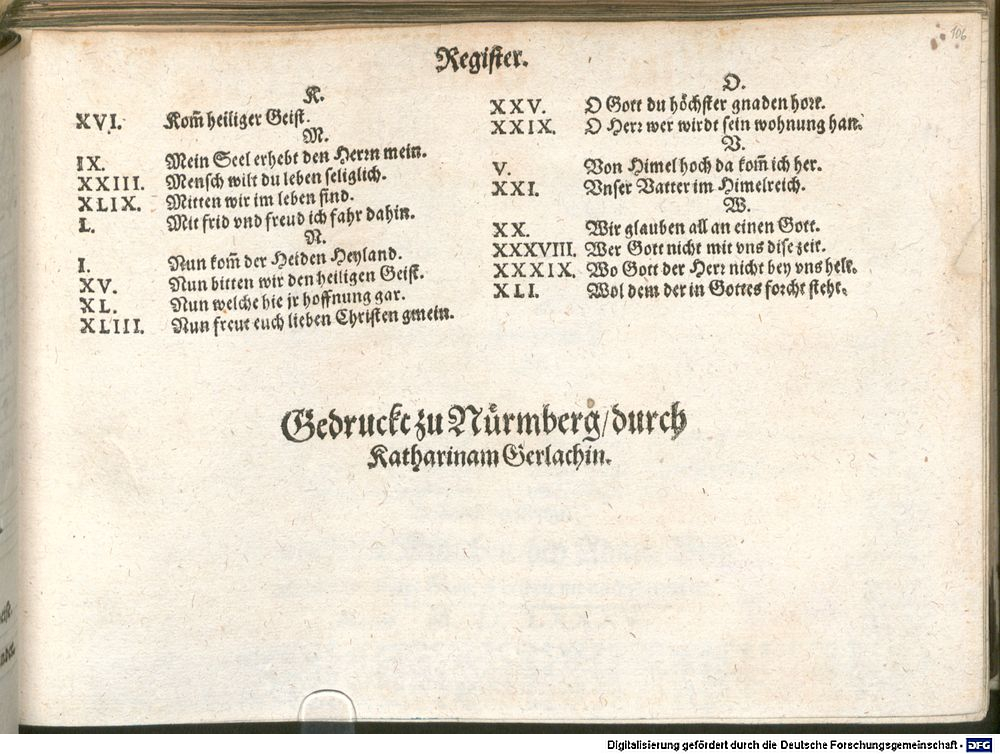 106
Register.
K.
XVI. Kom̄ heiliger Geist.
M.
IX. Mein Seel erhebt den Herrn mein.
XXIII. Mensch wilt du leben seliglich.
XLIX. Mitten wir im leben sind.
L. Mit frid vnd freud ich fahr dahin.
N.
I. Nun kom̄ der Heiden Heyland.
XV. Nun bitten wir den heiligen Geist.
XL. Nun welche hie jr hoffnung gar.
XLIII. Nun freut euch lieben Christen gmein.
O.
XXV. O Gott du höchster gnaden hort.
XXIX. O Herr wer wirdt sein wohnung han.
V.
V. Von Himel hoch da kom̄ ich her.
XXI. Vnser Vatter im Himelreich.
W.
XX. Wir glauben all an einen Gott.
XXXVIII. Wer Gott nicht mit vns dise zeit.
XXXIX. Wo Gott der Herr nicht bey vns helt.
XLI. Wol dem der in Gottes forcht steht.
Gedruckt zu Nürmberg/durch
Katharinam Gerlachin.
Digitalisierung gefördert durch die Deutsche Forschungsgemeinschaft - DFG